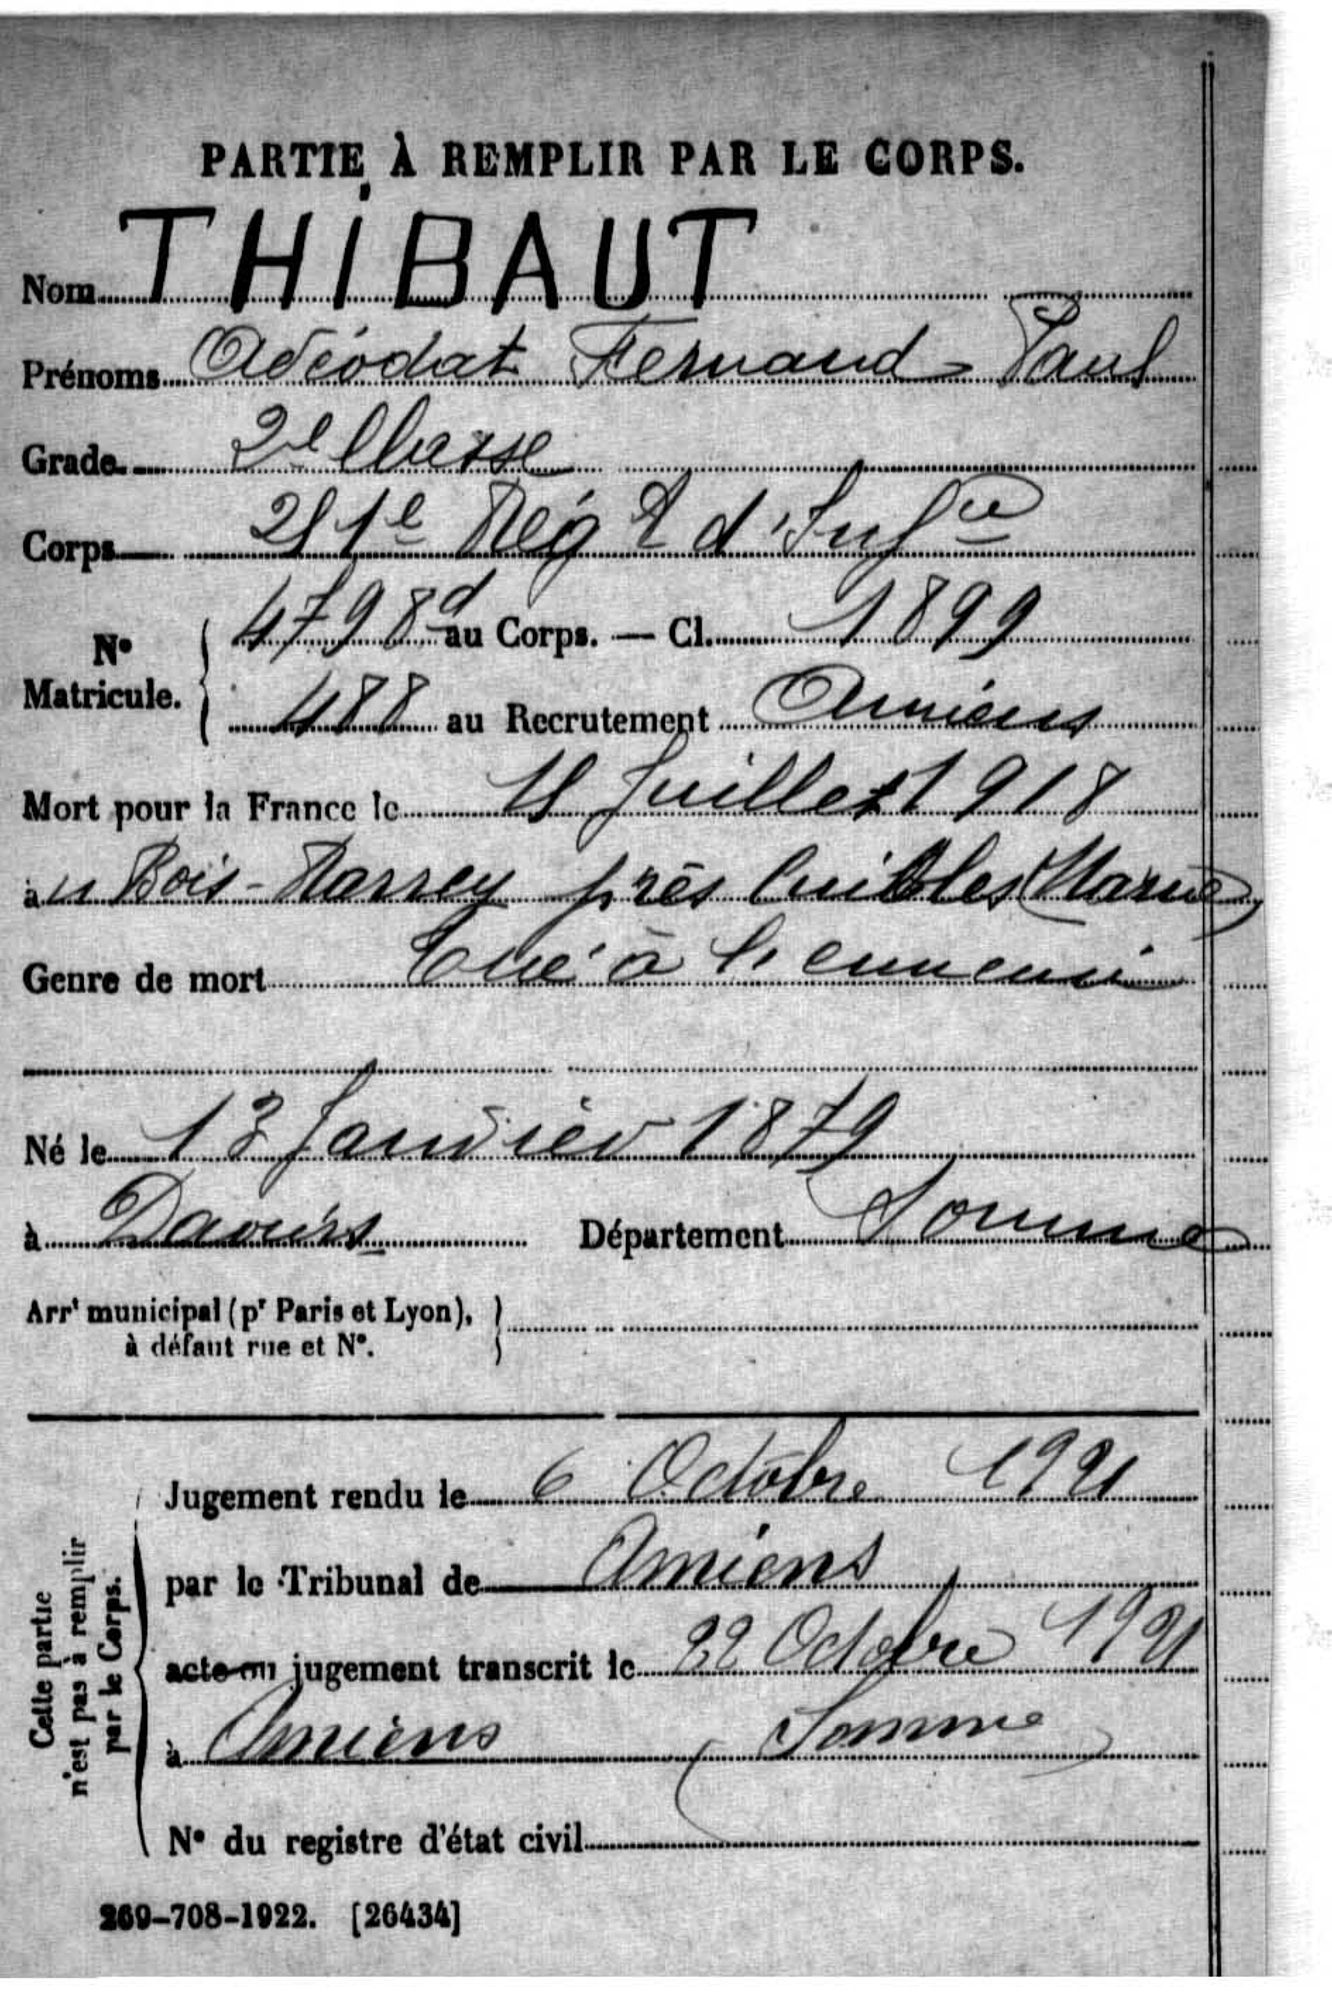 PARTIE À REMPLIR PAR LE CORPS.
Nom THIBAUT
Prénoms Adéodat Fernand - Paul
Grade 2e Classe
Corps 251e Rég t d'Infie
No Matricule. 4798 d au Corps. — Cl. 1899
488 au Recrutement Amiens
Mort pour la France le Juillet 1918
au Bois - près (Marne)
Genre de mort Tué à l'ennemi
Né le 13 Janvier 1879
à Daours Département Somme
Arrt municipal (pr Paris et Lyon),
à défaut rue et No.
Cette partie n'est pas à remplir par le Corps.
Jugement rendu le 6 Octobre 1921
par le Tribunal de Amiens
acte ou jugement transcrit le 22 Octobre 1921
à Amiens (Somme)
No du registre d'état civil
269-708-1922. [26434]